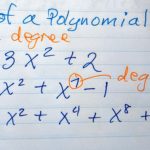 of a Polynomial
degree
3x² + 2
x² + x⁷ - 1
deg
x² + x⁴ + x⁸ +